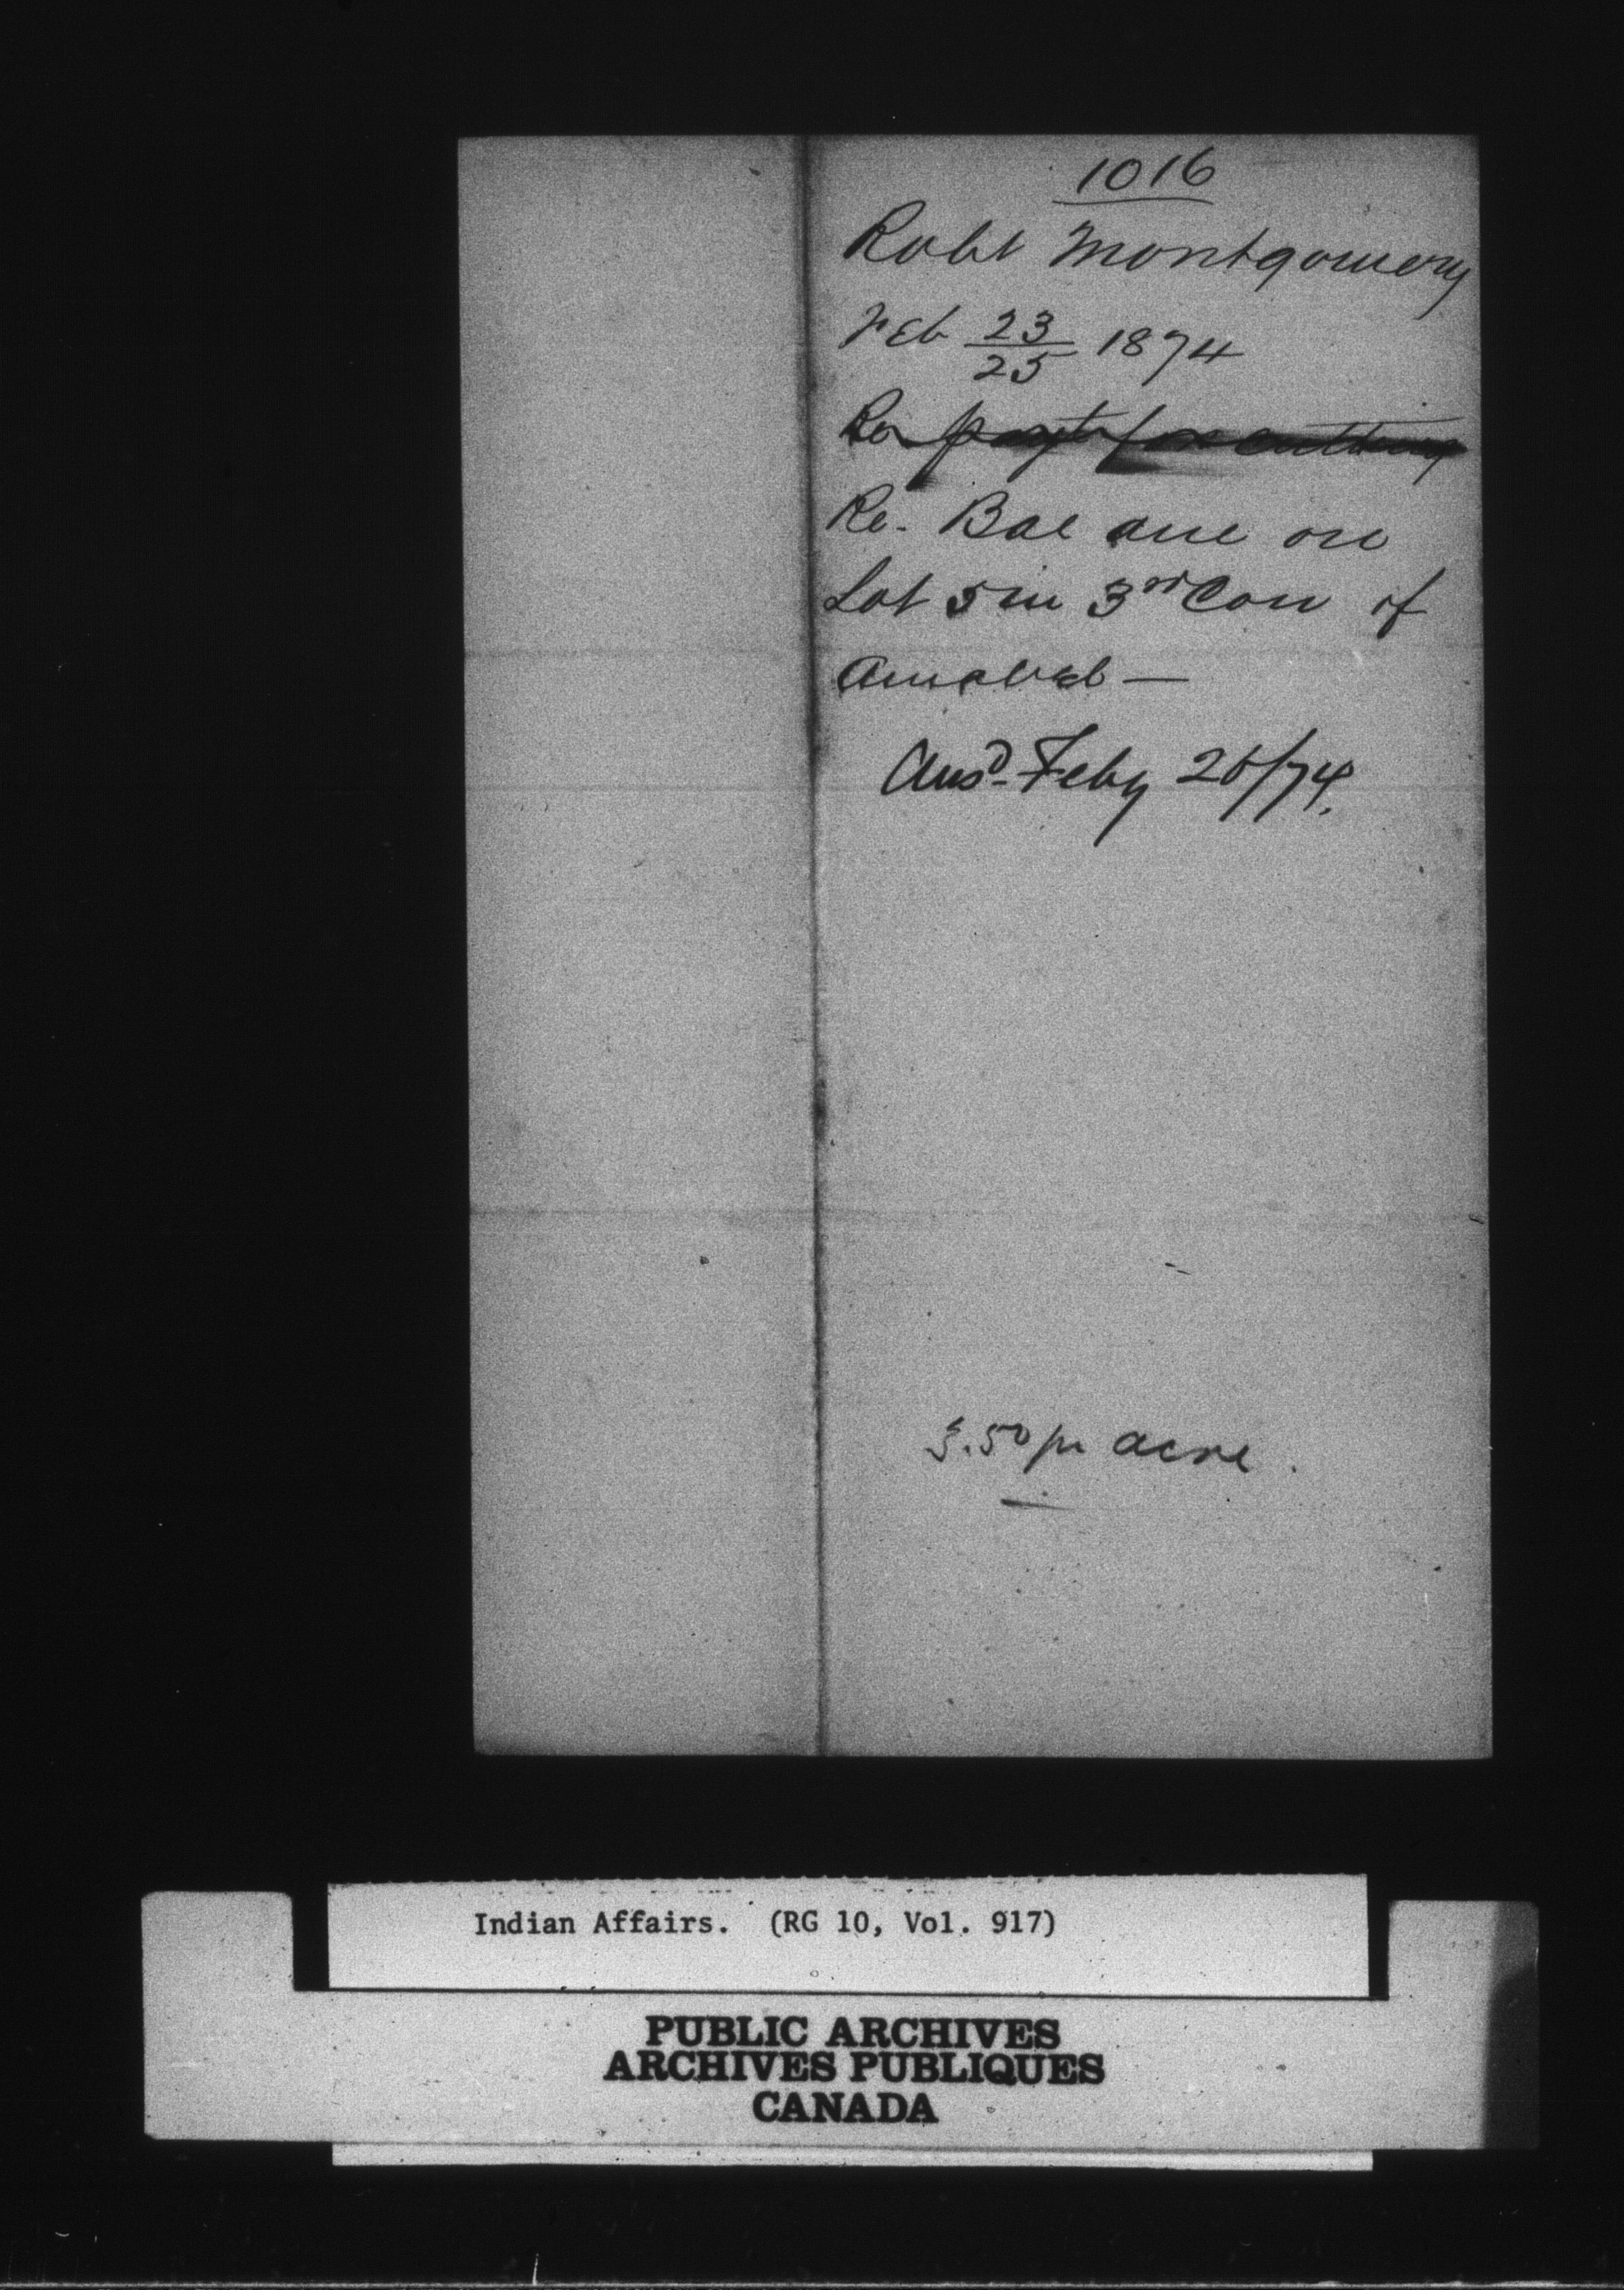 1016
Robt Montgomery
Feb 23/25 1874
Re payt for cutting
Re. Bal due on
Lot 5 in 3rd Con of
Amabel —
Ansd. Feby 26/74.
3.50 pr acre.
Indian Affairs. (RG 10, Vol. 917)
PUBLIC ARCHIVES
ARCHIVES PUBLIQUES
CANADA